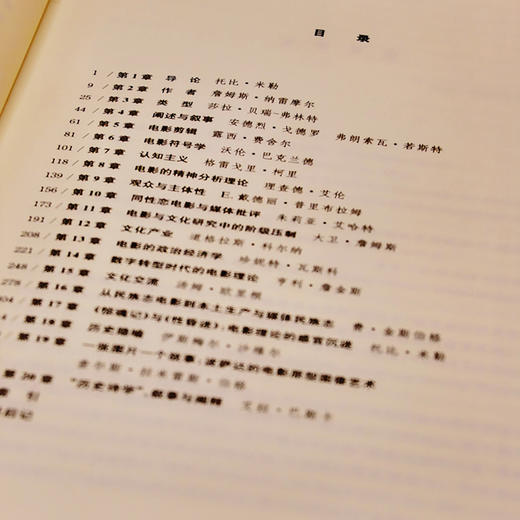 目 录
1 / 第1章 导论 托比·米勒
9 / 第2章 作者 詹姆斯·纳雷摩尔
25 / 第3章 类型 莎拉·贝瑞-弗林特
44 / 第4章 阐述与叙事 安德烈·戈德罗 弗朗索瓦·若斯特
61 / 第5章 电影剪辑 露西·费舍尔
81 / 第6章 电影符号学 沃伦·巴克兰德
101 / 第7章 认知主义 格雷戈里·柯里
118 / 第8章 电影的精神分析理论 理查德·艾伦
139 / 第9章 观众与主体性 E.戴德丽·普里布拉姆
156 / 第10章 同性恋电影与媒体批评 朱莉亚·艾哈特
173 / 第11章 电影与文化研究中的阶级压制 大卫·詹姆斯
191 / 第12章 文化产业 道格拉斯·科尔纳
208 / 第13章 电影的政治经济学 珍妮特·瓦斯科
221 / 第14章 数字转型时代的电影理论 亨利·詹金斯
248 / 第15章 文化交流 汤姆·欧里根
278 / 第16章 从民族志电影到本土生产与媒体民族志 费·金斯伯格
304 / 第17章 《惊魂记》与《性昏迷》:电影理论的感官沉迷 托比·米勒
第18章 历史隐喻 伊斯梅尔·沙维尔
第19章 一张图片一个故事:波萨达的电影原型图像艺术
查尔斯·拉米雷斯·伯格
第20章 “历史诗学”、叙事与阐释
索引